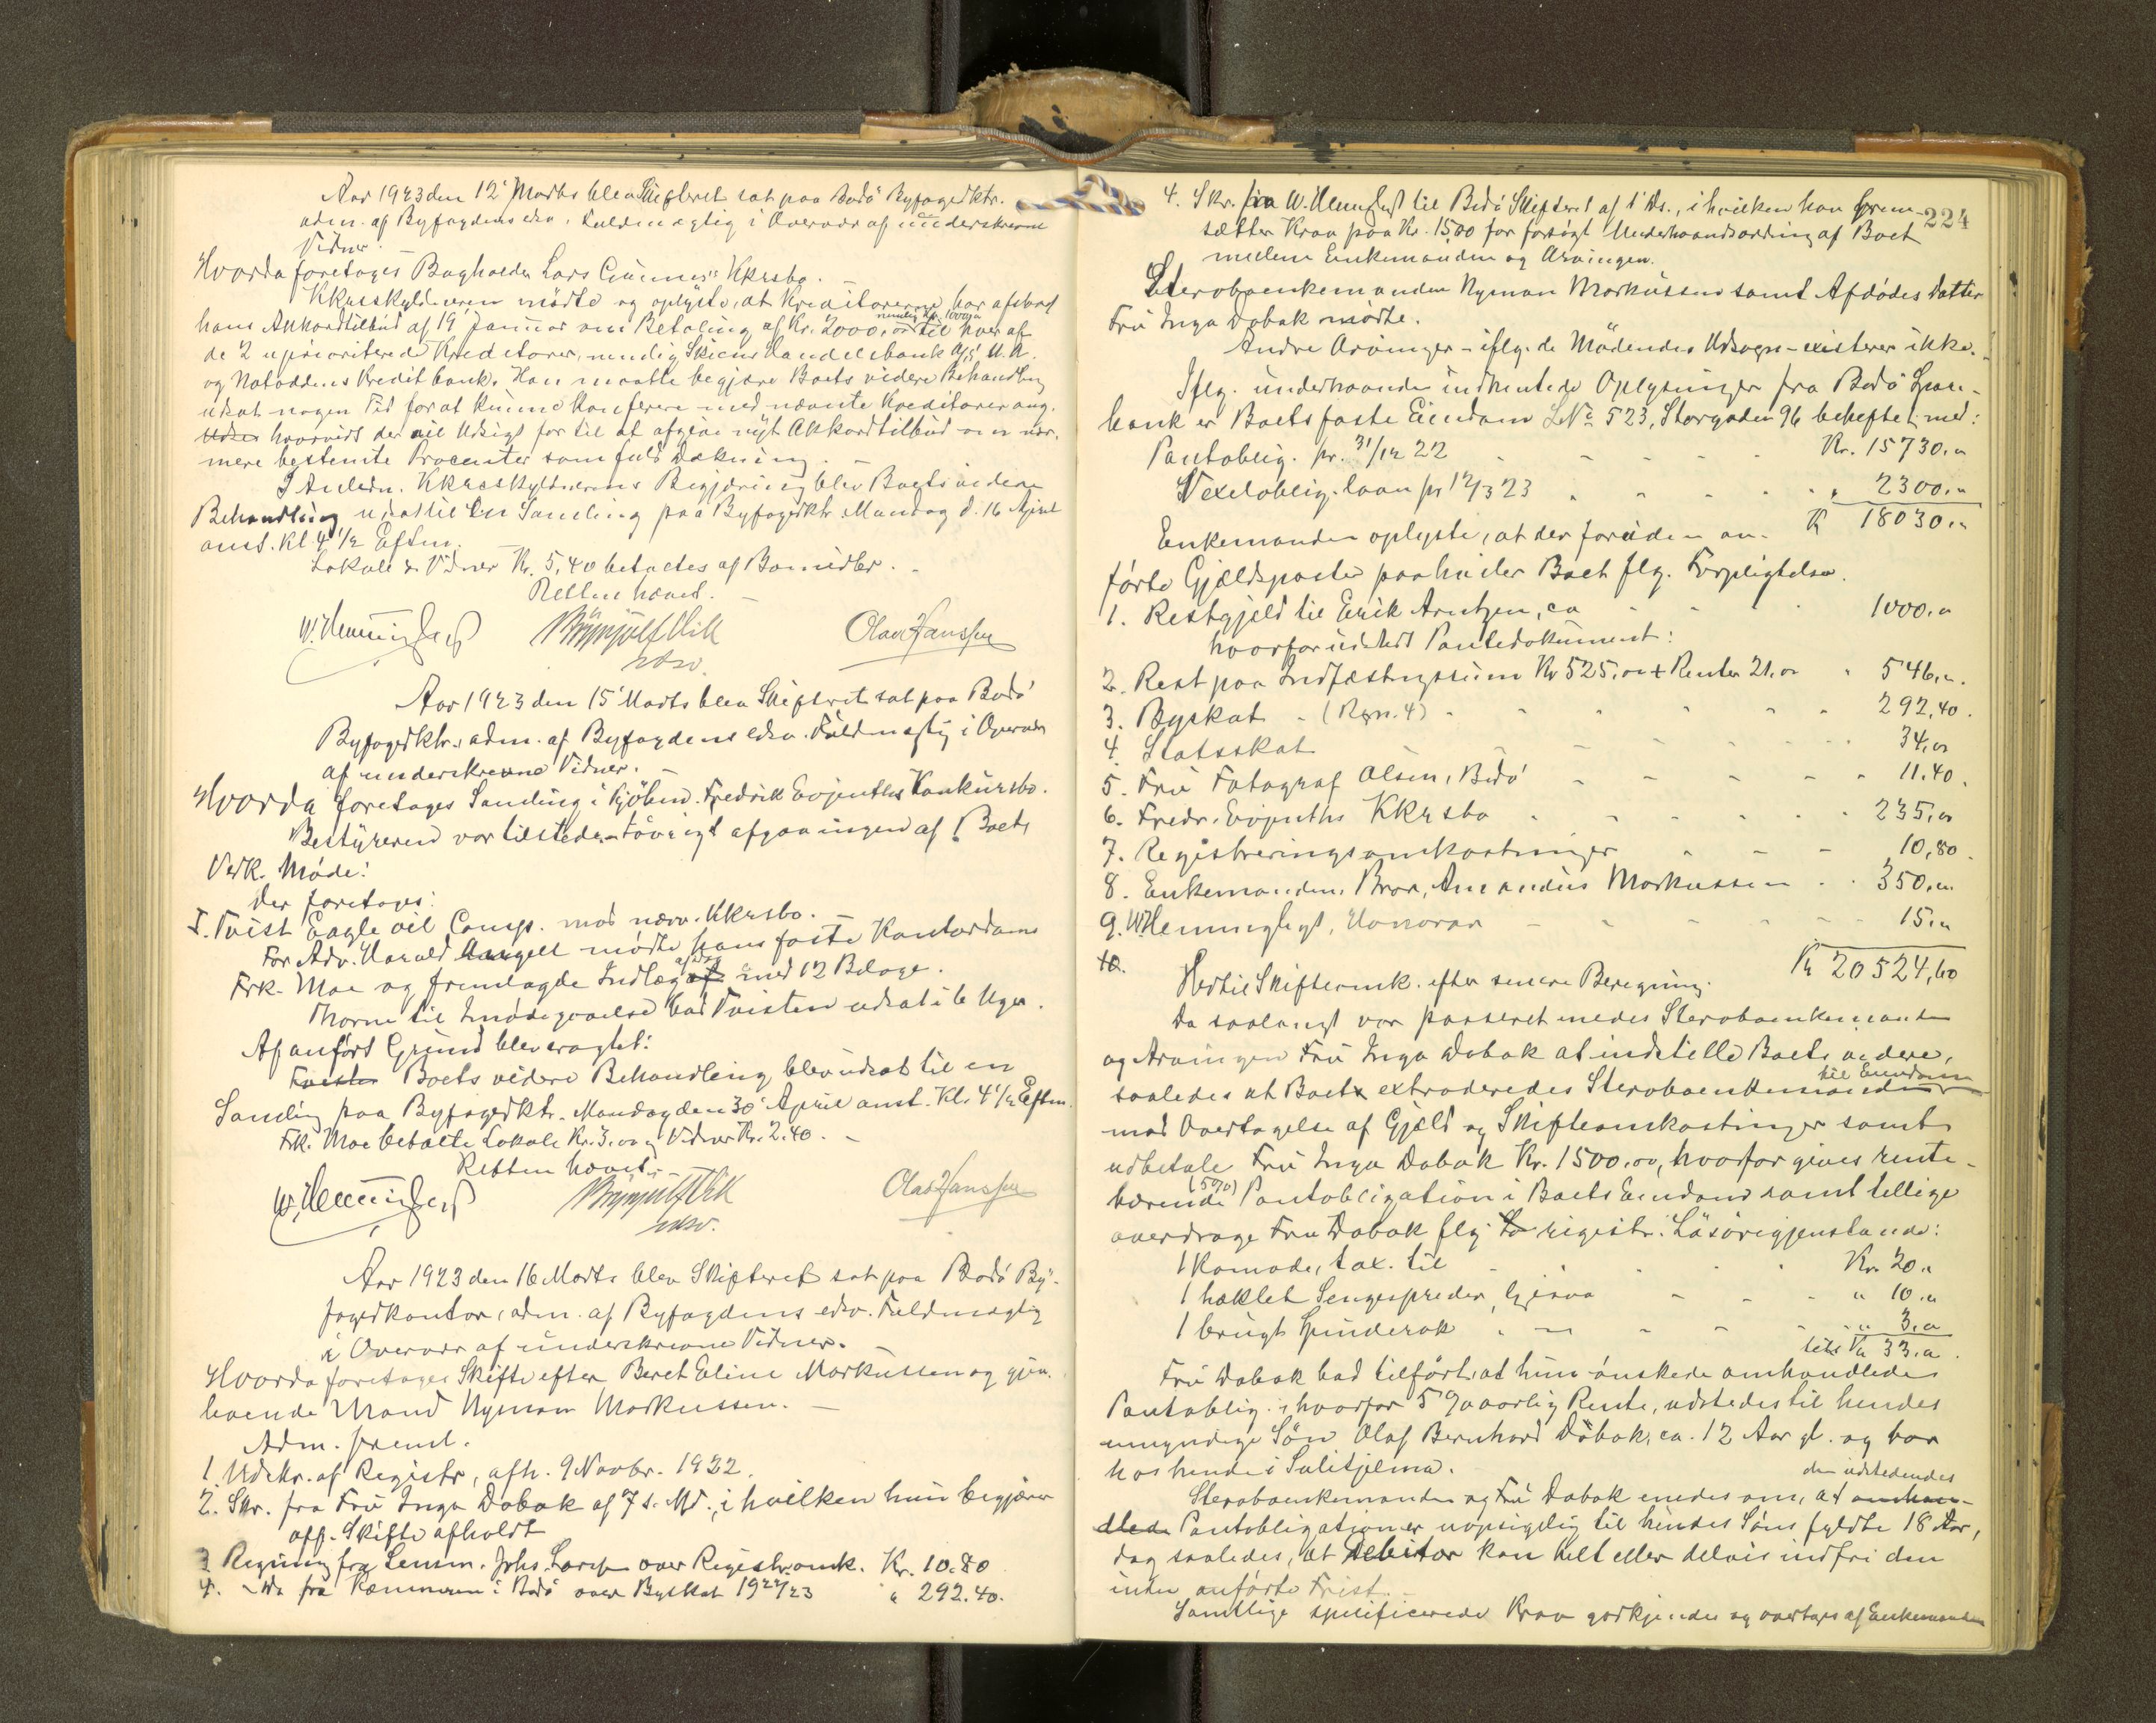 Aar 1923 den 12' Marts blev Skifteret sat paa Bodö Byfogedktr.
adm. af Byfogdens edsv. Fuldmægtig i Overvær af underskrevne
Vidner.
Hvorda foretages Bagholder Lars Kkrsbo.
Kkrsskyldneren mödte og oplyste, at Kreditorerne har afslaaet
hans Akkordtilbud af 19' Januar om Betaling af Kr. 2000.00 nemlig Kr. 1000.00 til hver af
de 2 upriviterede Kreditorer, nemlig Skiens Handelsbank A/S U. A.
og Notoddens Kreditbank. Han maatte begjære Boets videre Behandling
udsat nogen Tid for at kunne konferere med nævnte Kreditorer ang.
hvorvidt der vil Udsigt for til at afgive nyt Akkordtilbud om nær-
mere bestemte Procenter som fuld Dækning. –
I Anledn. Kkrsskyldnerens Begjæring blev Boets videre
Behandling udsat til en Samling paa Byfogedktr. Mandag d. 16 April
anst. Kl. 4 1/2 Eftm.
Lokale & Vidner Kr. 5,40 betaltes af Bomidler. –
Retten hævet. –
W. Henningsen Brynjulf Vik Olav Hanssen
edsv.
Aar 1923 den 15' Marts blev Skifteret sat paa Bodö
Byfogedktr., adm. af Byfogdens edsv. Fuldmægtig i Overvær
af underskrevne Vidner. –
Hvorda foretages Samling i Kjöbmd. Fredrik Evjenths Konkursbo.
Bestyreren var tilstede – tövrigt afgaaingen af Boets
Verk. Möde:
Der foretoges:
I. Tvist Eagle oil Comp. mod nærv. Kkrsbo.
For Adv. Harald Aangell mödte hans faste Kontordame
Frk. Moe og fremlagde Indlæg af af Dag med 12 Bilage.
Thorne til Imödegaaelse bad Tvisten udsat i 6 Uger.
Af anfört Grund blev eragtet:
Tvisten Boets videre Behandling blev udsat til en
Samling paa Byfogedktr. Mandag den 30' April anst. Kl. 4 1/2 Eftm.
Frk. Moe betalte Lokale Kr. 3.00 og Vidner Kr. 2.40. –
Retten hævet. –
W. Henningsen Brynjulf Vik Olav Hanssen
edsv.
Aar 1923 den 16 Marts blev Skifteret sat paa Bodö By-
fogedkontor, adm. af Byfogdens edsv. Fuldmægtig
i Overvær af underskrevne Vidner.
Hvorda foretages Skifte efter Beret Eline Markussen og gjen-
levende Mand Nyman Markussen. –
Adm. freml.
1. Udskr. af Registr, afh. 9 Novbr. 1922.
2. Skr. fra Fru Inga Dobak af 7 d. Md., i hvilken hun begjærer
off. Skifte afholdt
3 Regning fra Lensm. Johs. over Registr.omk. Kr. 10.80
4. – Do fra Kæmneren i Bodö over Byskat 1922/23 " 292.40.
224
4. Skr. fra W. Henningsen til Bodö Skifteret af 1' ds., i hvilken han frem-
sætter Krav paa Kr. 15,00 for forsögt Underhaandsordning af Boet
mellem Enkemanden og Arvingen.
Sterboenkemanden Nyman Markussen samt Afdödes Datter
Fru Inga Dobak mödte.
Andre Arvinger – iflg. de Mödendes Udsagn – existerer ikke.
Iflg. underhaanden indhentede Oplysninger fra Bodö Spare-
bank er Boets faste Eiendom LNo 523, Storgaden 96 beheftet med:
Pantoblig. pr. 31/12 22 Kr. 15730.00
Vexeloblig. laan pr 12/3 23 " 2300.00
Enkemanden oplyste, at der foruden an- Kr 18030.00
förte Gjældsposter paahviler Boet flg. Forpligtelser.
1. Restgjeld til Erik Arntzen, ca 1000.00
hvorfor udstedt Pantedokument:
2. Rest paa Indfæstngssum Kr 525,00 + Renter 21.00 " 546,00.
3. Byskat - (Regn. 4) 292,40.
4. Statsskat 34,00
5. Fru Fotograf Olsen, Bodö 11.40.
6. Fredr. Evjenths Kkrsbo 235,00
7. Registreringsomkostninger 10,80.
8. Enkemandens Bror, Amandus Markussen 350,00
9. W. Henningsen, Honorar 15.00
10. Kr 20524,60
Hertil Skifteomk. efter senere Beregning.
Da saalangt var passeret enedes Sterboenkemanden
og Arvingen Fru Inga Dobak at indstille Boets videre,
saaledes at Boet extraderedes Sterboenkemanden til Eiendom
mod Overtagelse af Gjæld og Skifteomkostninger samt
udbetale Fru Inga Dobak Kr. 1500.00, hvorfor gives rente-
bærende (5%) Pantobligation i Boets Eiendom samt tillige
overdrage Fru Dobak flg. registr. Lösöregjenstande:
1 Komode, tax. til Kr. 20.00
1 hæklet Sengespreder " 10.00
1 brugt Spinderok " 3.00
tils. Kr 33.00.
Fru Dobak bad tilfört, at hun önskede omhandlede
Pantoblig., hvorfor 5% aarlig Rente, udstedes til hendes
umyndige Sön Olaf Bernhard Dobak, ca. 12 Aar gl. og bor
hos hende i Sulitjelma.
Sterboenkemanden og Fru Dobak enedes om, at omhan- den udstedendes
dlede Pantobligation er uopsigelig til hendes Söns fyldte 18 Aar,
dog saaledes, at Debitor kan helt eller delvis indfri den
inden anförte Frist. –
Samtlige specificerede Krav godkjendes og overtages af Enkemanden